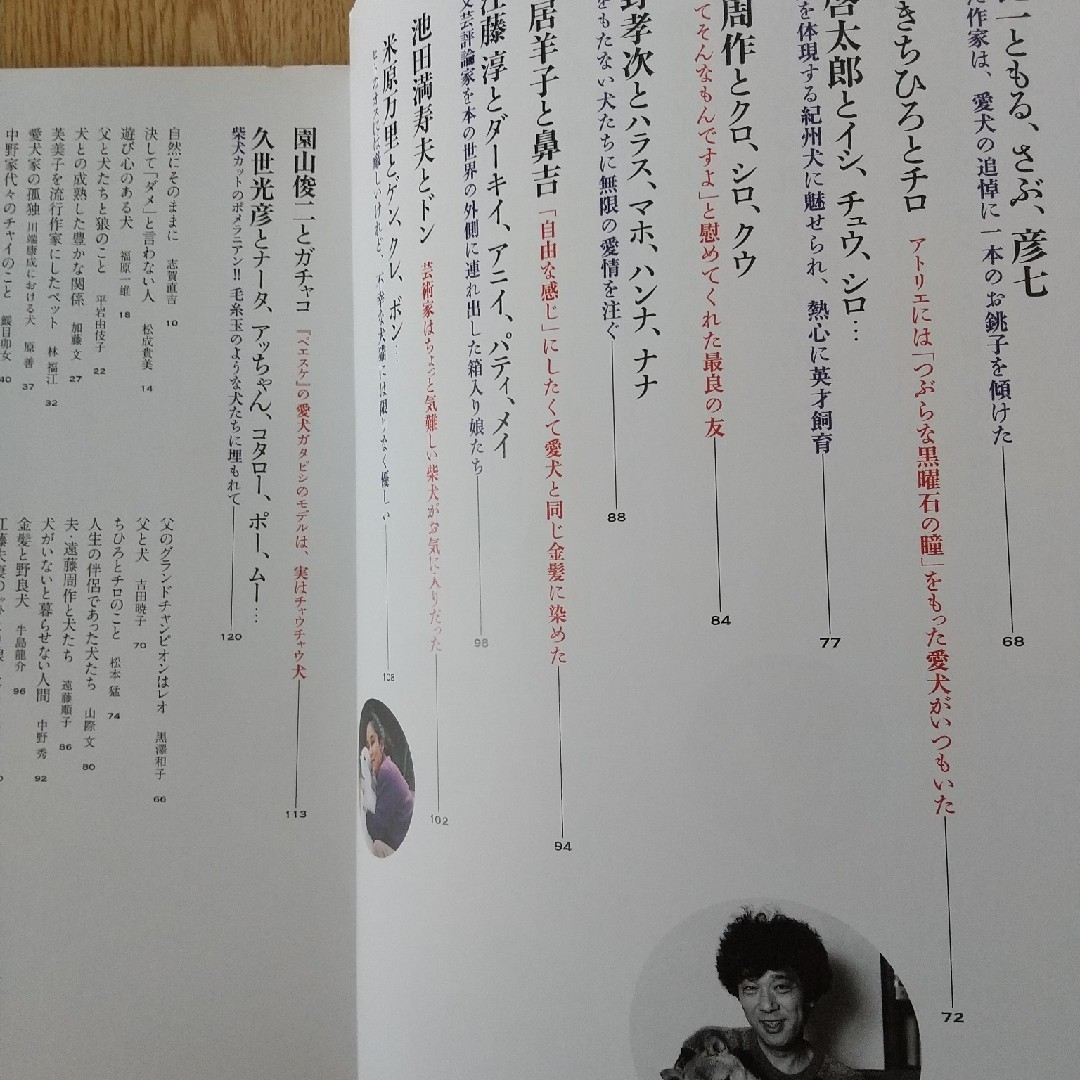 一ともる、さぶ、彦七
作家は、愛犬の追悼に一本のお銚子を傾けた
68
きちひろとチロ
アトリエには「つぶらな黒曜石の瞳」をもった愛犬がいつもいた
72
太郎とイシ、チュウ、シロ…
を体現する紀州犬に魅せられ、熱心に英才飼育
77
周作とクロ、シロ、クウ
てそんなもんですよ」と慰めてくれた最良の友
84
孝次とハラス、マホ、ハンナ、ナナ
をもたない犬たちに無限の愛情を注ぐ
88
居羊子と鼻吉
「自由な感じ」にしたくて愛犬と同じ金髪に染めた
94
江藤淳とダーキイ、アニイ、パティ、メイ
文芸評論家を本の世界の外側に連れ出した箱入り娘たち
98
池田満寿夫とドン
芸術家はちょっと気難しい柴犬がお気に入りだった
102
米原万里とゲン、クレ、ボン…
108
園山俊二とガチャコ
『ペエスケ』の愛犬ガタピシのモデルは、実はチャウチャウ犬
113
久世光彦とナータ、アッちゃん、コタロー、ポー、ムー…
柴犬カットのポメラニアン!! 毛糸玉のような犬たちに埋もれて
120
自然にそのままに 志賀直吉 10
決して「ダメ」と言わない人 松成貴美 14
遊び心のある犬 福原一雄 18
父と犬たちと狼のこと 平岩由伎子 22
犬との成熟した豊かな関係 加藤文 27
芙美子を流行作家にしたペット 林福江 32
愛犬家の孤独 川端康成における犬 原善 37
中野家代々のチャイのこと 鰀目卯女 40
父のグランドチャンピオンはレオ 黒澤和子 66
父と犬 吉田暁子 70
ちひろとチロのこと 松本猛 74
人生の伴侶であった犬たち 山際文 80
夫・遠藤周作と犬たち 遠藤順子 86
犬がいないと暮らせない人間 中野秀 92
金髪と野良犬 半島龍介 96